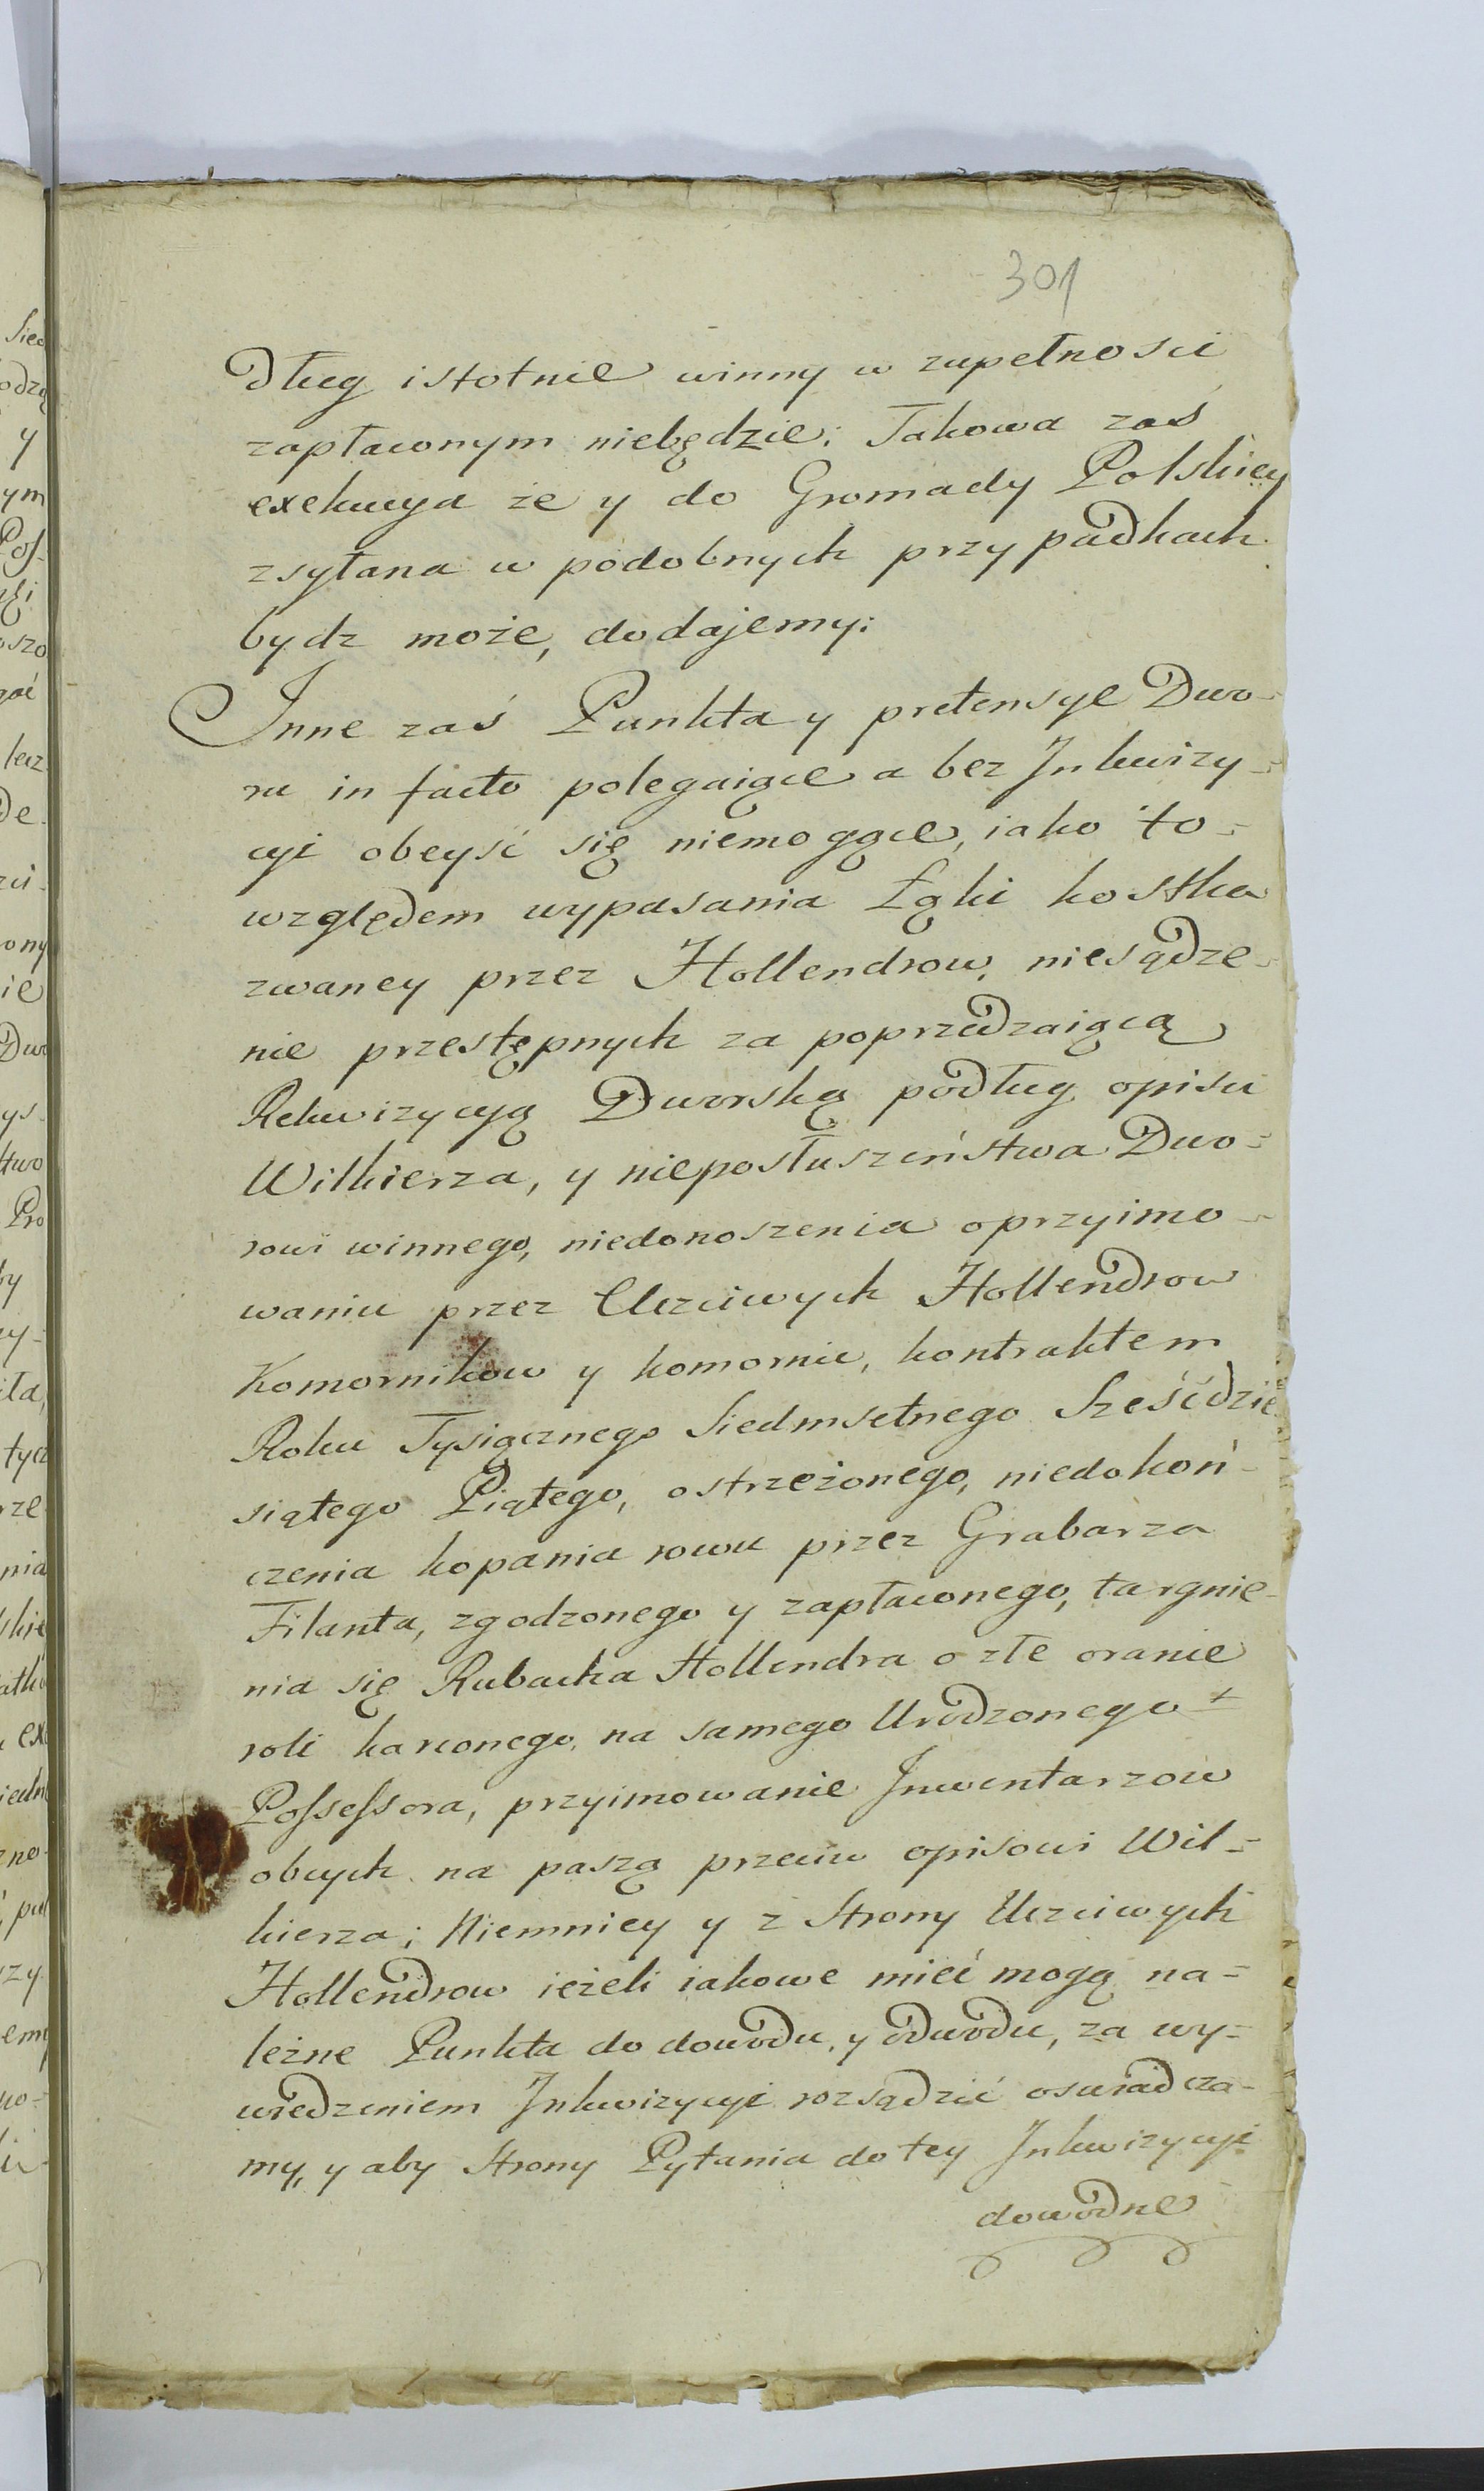 301
Dług istotnie winny w zupełności
zapłaconym niebędzie; Takowa zaś
exekucya że y do Gromady Polskiey
zsyłana w podobnych przypadkach
bydz może, dodajemy;
Inne zaś Punkta y pretensye Dwo-
ru in facto polegaiące a bez Inkwizy-
cyi obeyść się niemogące, iako to-
względem wypasania Łąki kostka
zwaney przez Hollendrow, niesądze-
nie przestępnych za poprzedzaiącą
Rekwizycyą Dworską podług opisu
Wilkierza, y nieposłuszeństwa Dwo-
rowi winnego, niedonoszenia o przyimo-
waniu przez Uczciwych Hollendrow
Komornikow y komornic, kontraktem
Roku Tysiącznego Siedmsetnego Sześćdzie
siątego Piątego, ostrzeżonego, niedokoń-
czenia kopania rowu przez Grabarza
Filanta, zgodzonego y zapłaconego, targnie-
nia się Rubacha Hollendra o złe oranie
roli karconego, na samego Urodzonego
Possessora, przyimowanie Inwentarzow
obcych na paszą przeciw opisowi Wil-
kierza; Niemniey y z Strony Uczciwych
Hollendrow ieżeli iakowe mieć mogą na-
leżne Punkta do dowodu, y odwodu, za wy-
wiedzeniem Inkwizycyi rozsądzić oswiadcza-
my, y aby Strony Pytania do tey Inkwizycyi
dowodne